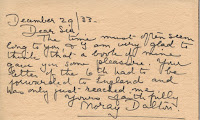 December 29/33.
Dear Sir
The time must often seem
long to you & I am very glad to
think that a book of mine
gave you some pleasure. Your
letter of the 6th had to be
forwarded to England and
has only just reached me
Yours faithfully
Moray Dalton